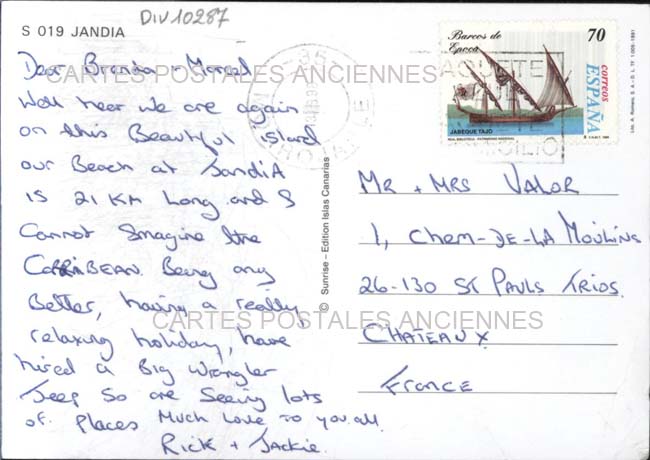 DIV10287
S 019 JANDIA
Dear Brenda + Marcel
Well hear we are again
on this Beautiful island
our Beach at JandiA
is 21 KM Long and I
Cannot Imagine the
CARRIBEAN Being any
Better, having a really
relaxing holiday, have
hired a Big Wrangler
Jeep So are Seeing lots
of Places Much Love to you all
Rick + Jackie.
© Sunrise – Edition Islas Canarias
Barcos de
Epoca
70
correos
ESPAÑA
JABEQUE TAJO
REAL BIBLIOTECA - PATRIMONIO NACIONAL
MR + MRS VALOR
1, Chem-DE-LA MOULINS
26-130 ST PAULS TRIOS
CHATEAUX
France
CARTES POSTALES ANCIENNES
CARTES POSTALES ANCIENNES